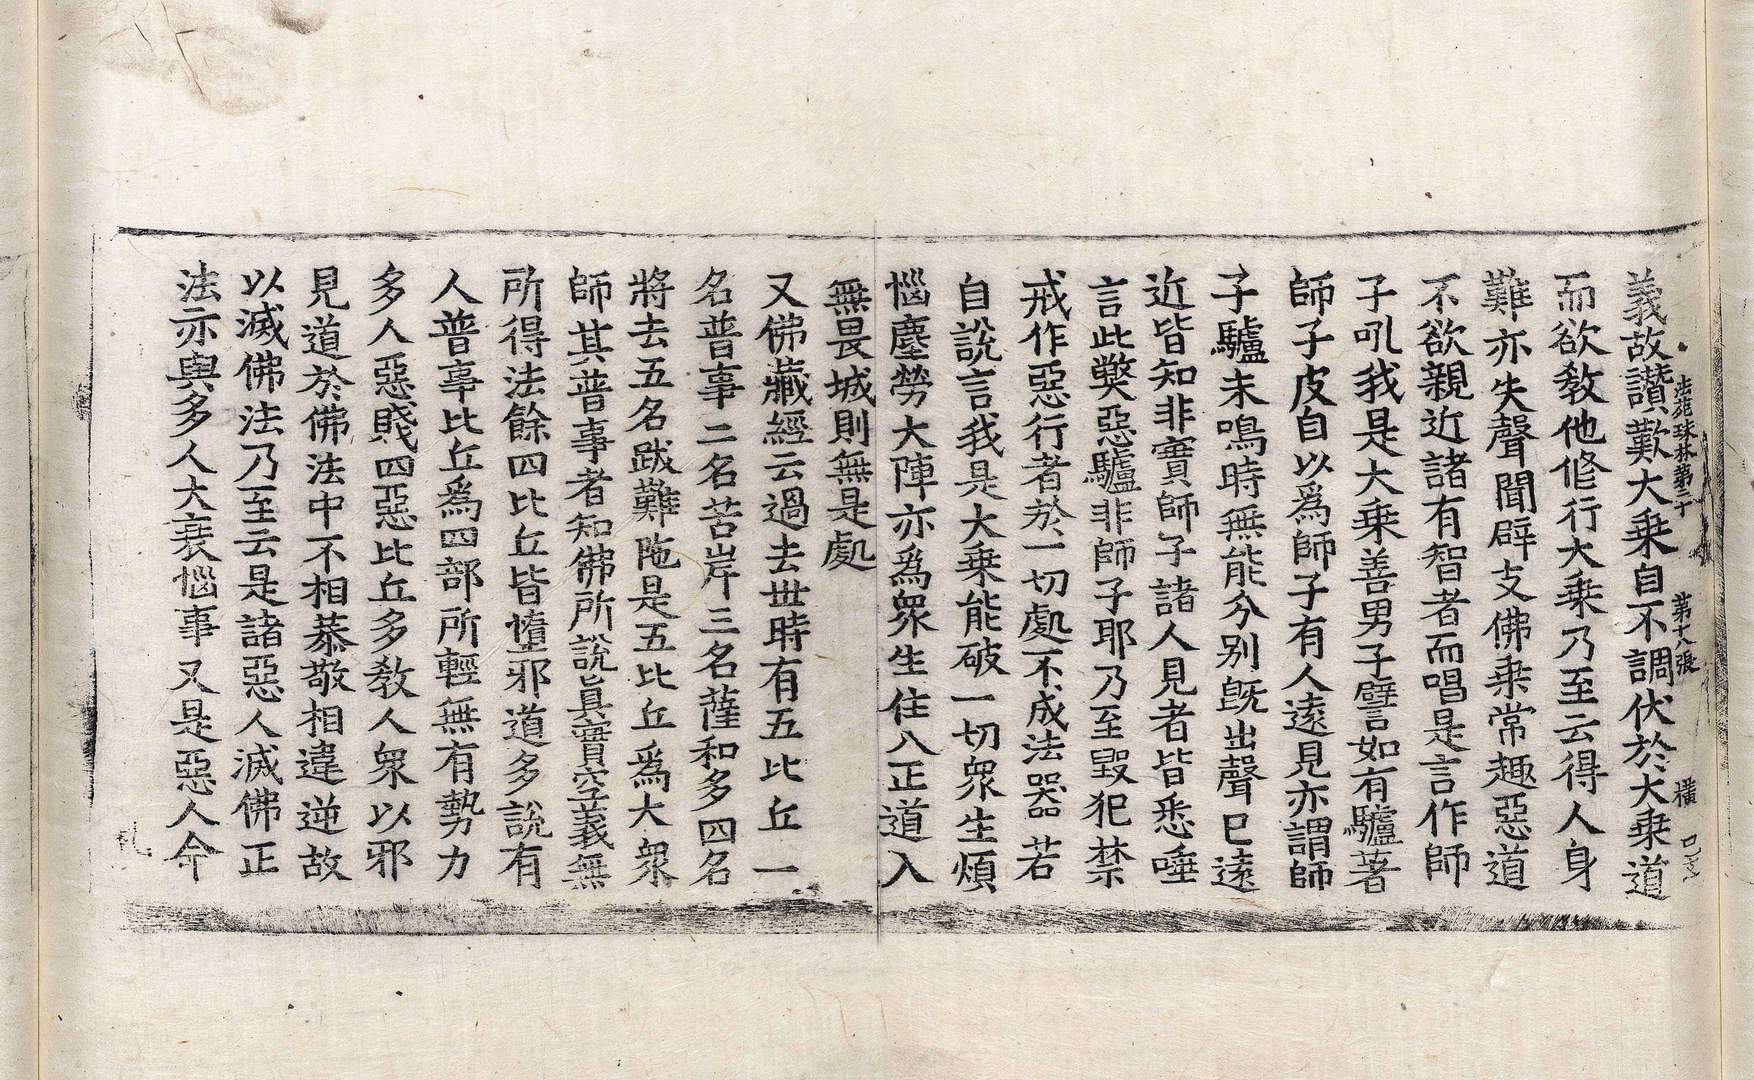 法苑珠林第二十　第十八張　橫
義故讃歎大乘自不調伏於大乘道
而欲敎他修行大乘乃至云得人身
難亦失聲聞辟支佛乘常趣惡道
不欲親近諸有智者而唱是言作師
子吼我是大乘善男子譬如有驢著
師子皮自以爲師子有人遠見亦謂師
子驢未鳴時無能分别旣出聲已遠
近皆知非實師子諸人見者皆悉唾
言此獘惡驢非師子耶乃至毀犯禁
戒作惡行者於一切處不成法器若
自說言我是大乘能破一切衆生煩
惱塵勞大陣亦爲衆生住八正道入
無畏城則無是處
又佛藏經云過去世時有五比丘一
名普事二名苦岸三名薩和多四名
將去五名跋難陁是五比丘爲大衆
師其普事者知佛所說眞實空義無
所得法餘四比丘皆墮邪道多說有
人普事比丘爲四部所輕無有勢力
多人惡賤四惡比丘多敎人衆以邪
見道於佛法中不相恭敬相違逆故
以滅佛法乃至云是諸惡人滅佛正
法亦與多人大衰惱事又是惡人命